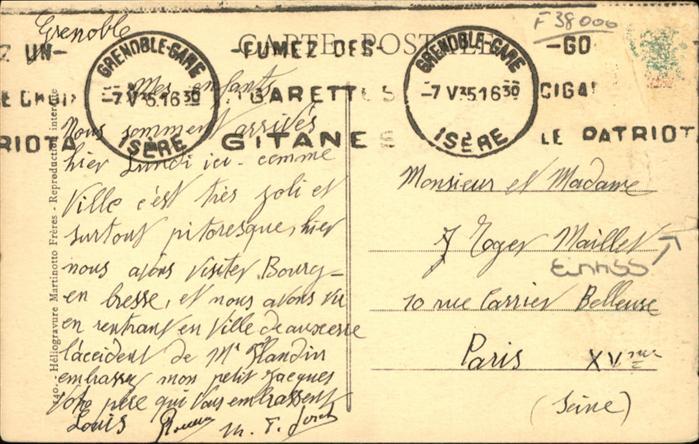 Grenoble
F 38000
CARTE POSTALE
Z UN- -FUMEZ DES- -GO
E CHOIX CIGARETTES CIGA
RIOTA GITANES LE PATRIOT
GRENOBLE-GARE
-7 V 35 16 30
ISÈRE
GRENOBLE-GARE
-7 V 35 16 30
ISÈRE
240. - Héliogravure Martinotto Frères - Reproduction interdite
Mes enfants
Nous sommes arrivés
hier Lundi ici - comme
Ville c'est très joli et
surtout pitoresque, hier
nous avons visiter Bourg-
en bresse, et nous avons vu
en rentrant en Ville de
l'accident de Mr Flandin
embrasser mon petit Jacques
Votre père qui vous embrassent
Louis
Monsieur et Madame
Roger Maillet
10 rue Carrier Belleuse
Paris XVme
(Seine)